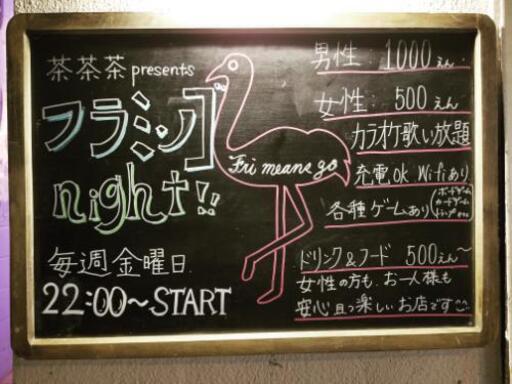 茶茶茶 presents
フラミンゴ
night!!
Fri means go
毎週金曜日
22:00～START
男性: 1000えん
女性: 500えん
カラオケ歌い放題
充電ok Wifiあり
各種ゲームあり(ボードゲーム
カードゲーム
トランプ etc
ドリンク&フード 500えん～
女性の方も、お一人様も
安心且つ楽しいお店です